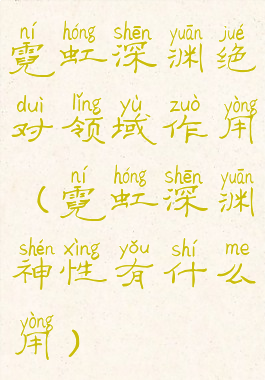 ní hóng shēn yuān jué
霓虹深渊绝
duì lǐng yù zuò yòng
对领域作用
ní hóng shēn yuān
（霓虹深渊
shén xìng yǒu shí me
神性有什么
yòng
用）